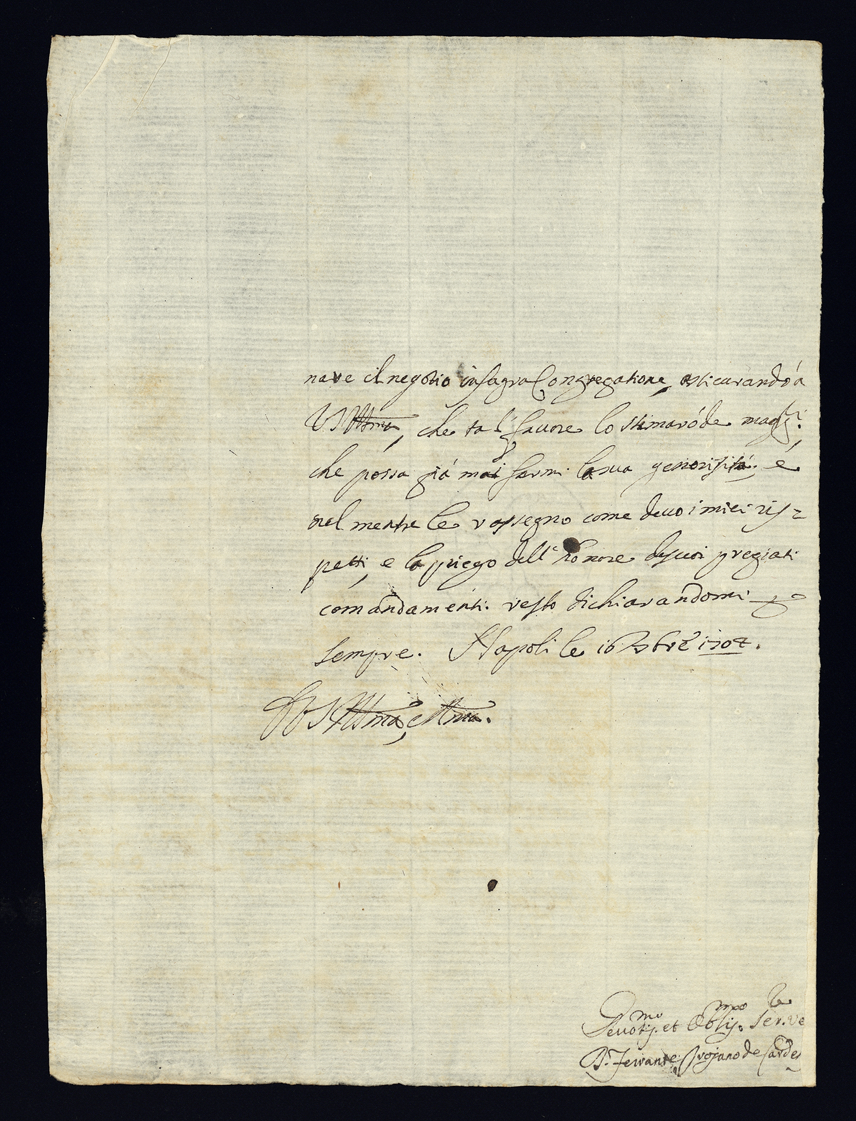 nare il negotio in sagra Congregatione, assicurando à
V S Illma, che tal favore lo stimarò de magr:
che possa già mai farmi la sua generosità: è
nel mentre le rassegno come devo i miei ris=
petti, e la priego dell' honore de suoi pregiati
comandamenti resto dichiarandomi
sempre. Napoli le 16 1704.
V S Illma, e Rma.
Devotis.mo et Oblig.mo Ser.re
D. Ferrante Trojano de